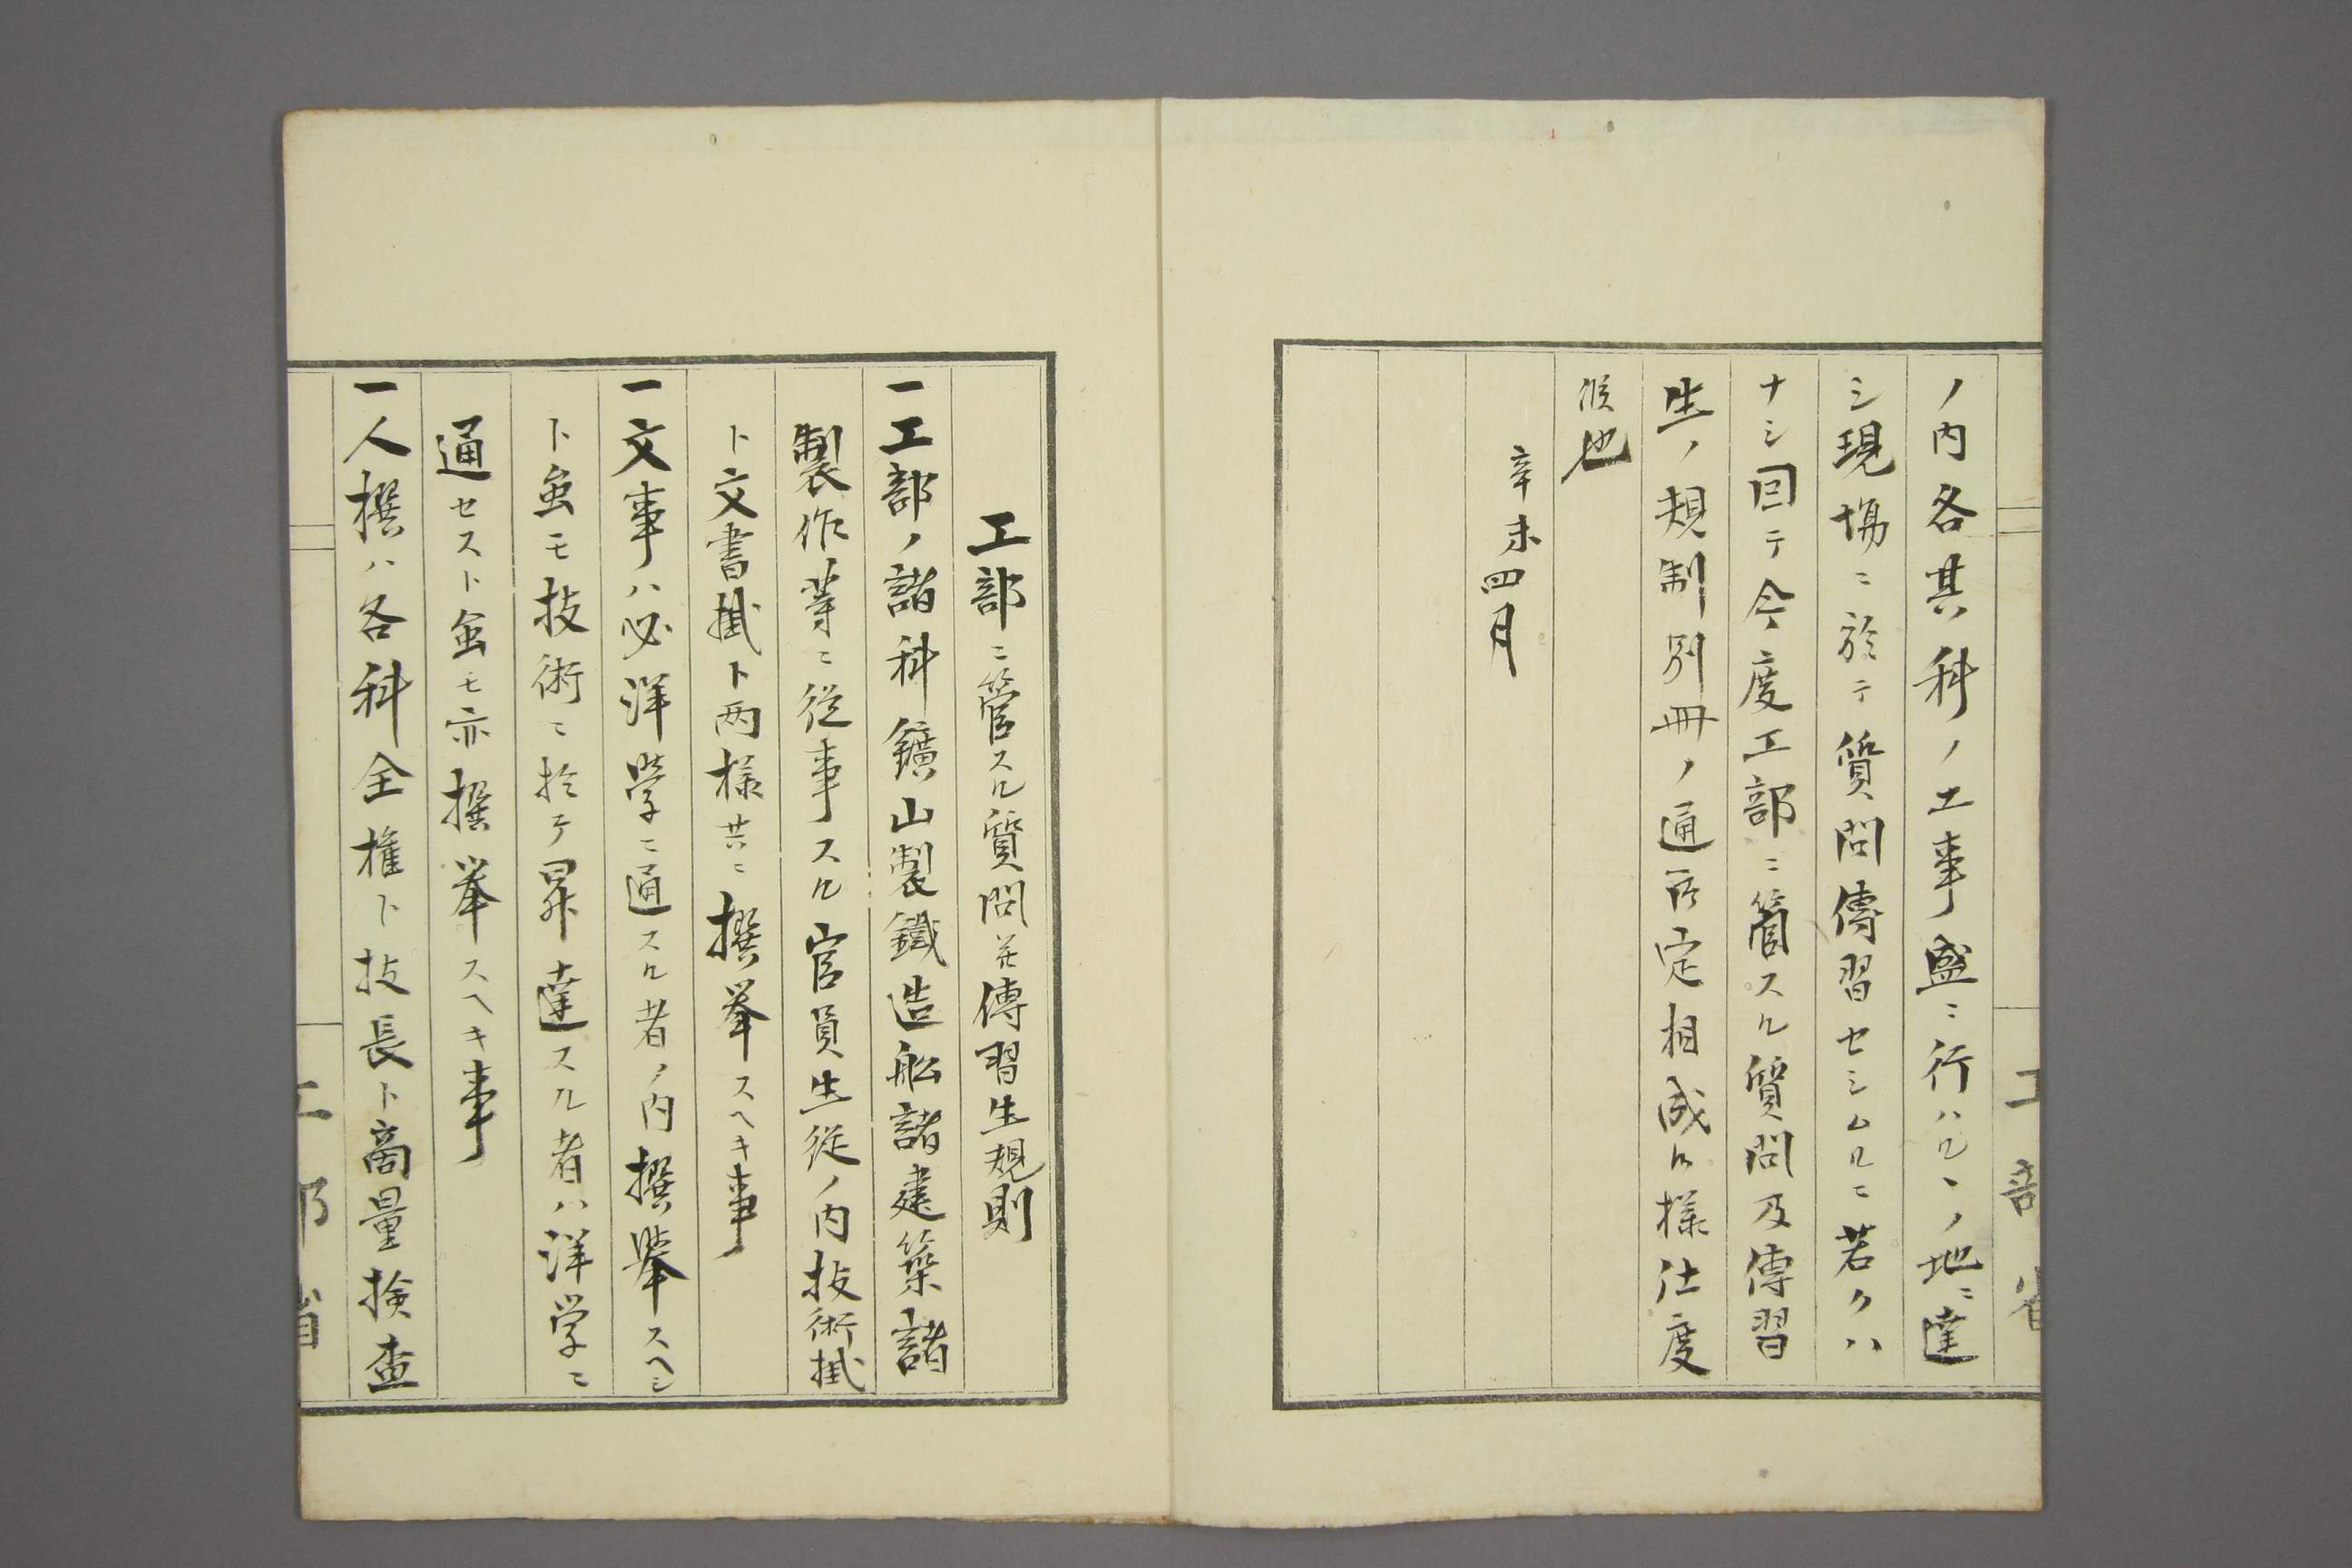 ノ内各其科ノ工事盛ニ行ハルヽノ地ニ達
シ現場ニ於テ質問傳習セシムルニ若クハ
ナシ因テ今度工部ニ管スル質問及傳習
生ノ規制別冊ノ通所定相成候様仕度
候也
辛未四月
工部省
工部ニ管スル質問并傳習生規則
一工部ノ諸科鑛山製鐵造船諸建築諸
製作等ニ從事スル官員生徒ノ内技術掛
ト文書掛ト两様共ニ撰挙スヘキ事
一文事ハ必洋學ニ通スル者ノ内撰擧スヘシ
ト虽モ技術ニ於テ昇達スル者ハ洋学ニ
通セスト虽モ亦撰挙スヘキ事
一人撰ハ各科全権ト技長ト商量検査
工部省